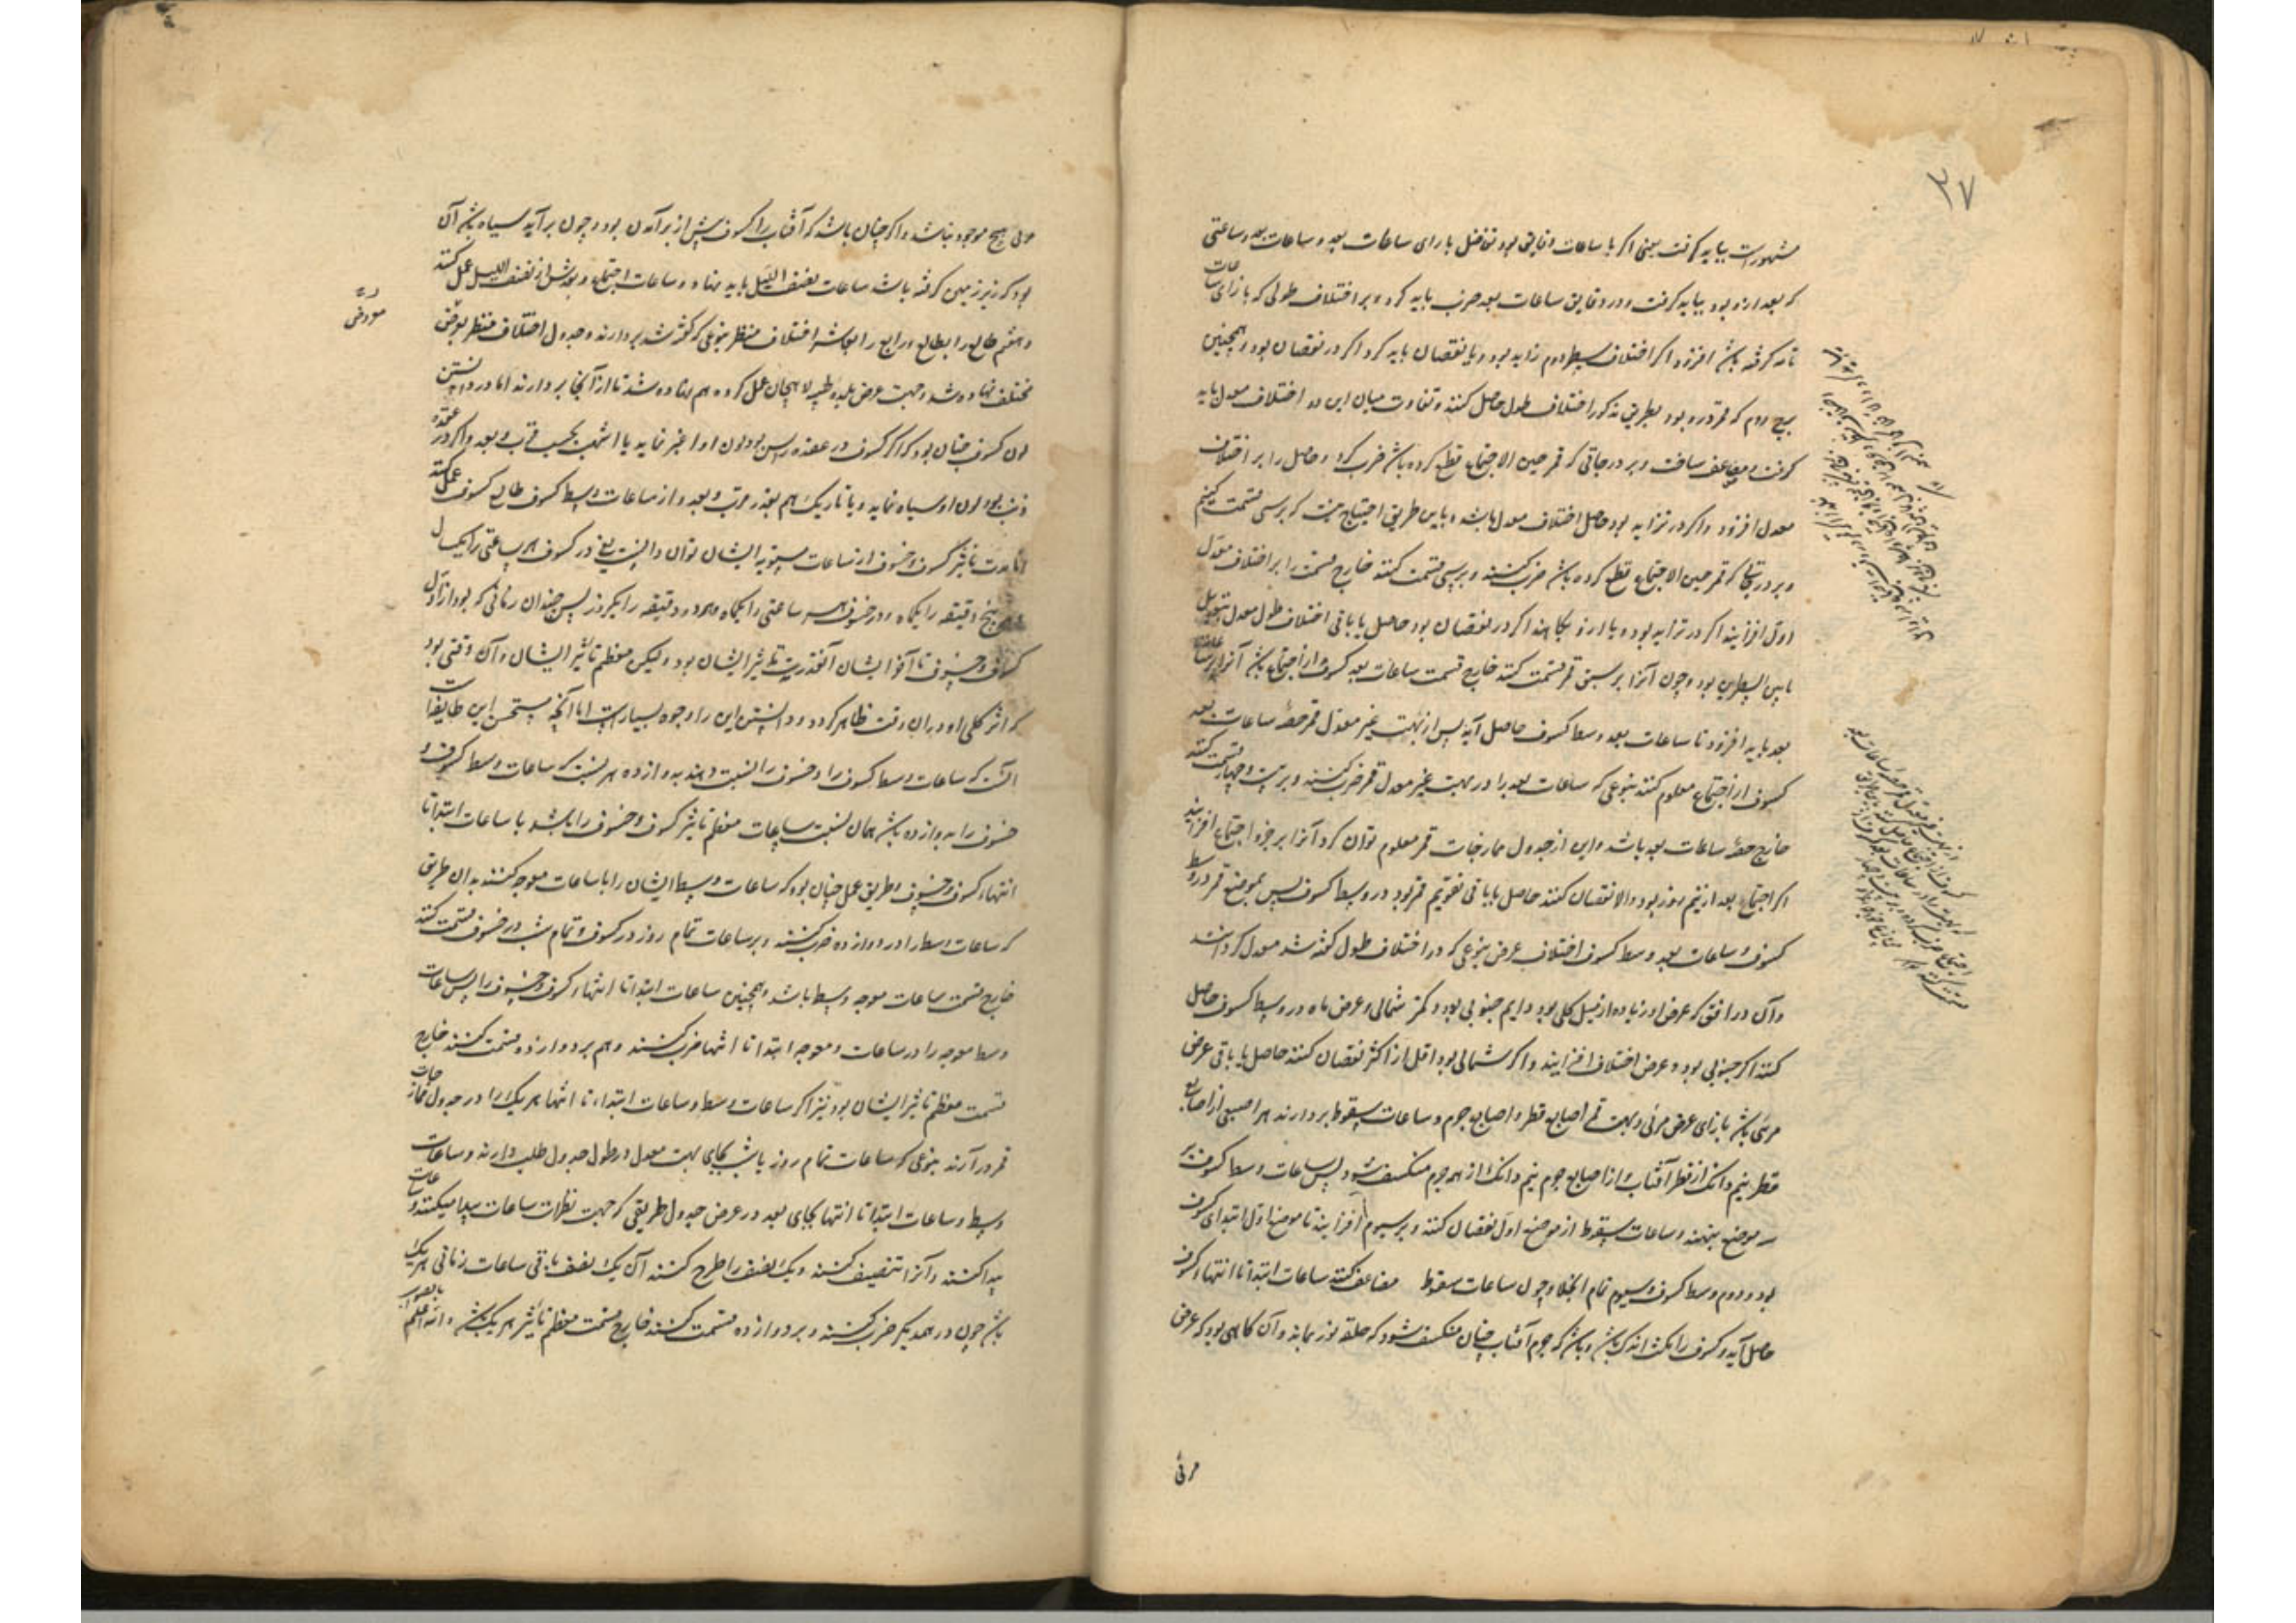 ۳۷
مشهورست بباید گرفت یعنی اگر با ساعات دقایق بود تفاضل بازای ساعات بعد و ساعات بعد و ساعتی
که بعد ازو بود بباید گرفت و در دقایق ساعات بعد ضرب باید کرد و بر اختلاف طولی که بازای ساعات
تامه گرفته باشد افزود اگر اختلاف سطر دوم زاید بود و یا نقصان باید کرد اگر در نقصان بود و همچنین
برج دوم که قمر درو بود بطریق مذکور اختلاف طول حاصل کنند و تفاوت میان این دو اختلاف معدل باید
گرفت و مضاعف ساخت و بر درجاتی که قمر حین الاجتماع قطع کرده باشد ضرب کرد و حاصل را بر اختلاف
معدل افزود و اگر در تزاید بود حاصل اختلاف معدل باشد و باین طریق احتیاج نیست که برسی قسمت کنیم
و بر درجاتی که قمر حین الاجتماع قطع کرده باشد ضرب کنند و برسی قسمت کنند خارج قسمت را بر اختلاف معدل
اول افزایند اگر در تزاید بود و یا ازو بکاهند اگر در نقصان بود حاصل یا باقی اختلاف طول معدل بتحویل
ما بین السطرین بود و چون آنرا بر سبق قمر قسمت کنند خارج قسمت ساعات بعد کسوف از اجتماع باشد آنرا بر ساعات
بعد باید افزود تا ساعات بعد وسط کسوف حاصل آید پس از بهت غیر معدل قمر حصه ساعات بعد
کسوف از اجتماع معلوم کنند بنوعی که ساعات بعد را در بهت غیر معدل قمر ضرب کنند و بر بیست و چهار قسمت کنند
خارج حصه ساعات بعد باشد و این از جدول ممازجات قمر معلوم توان کرد آنرا بر جزء اجتماع افزایند
اگر اجتماع بعد از نیم روز بود و الا نقصان کنند حاصل یا باقی تقویم قمر بود در وسط کسوف پس بموضع قمر در وسط
کسوف و ساعات بعد وسط کسوف اختلاف عرض بنوعی که در اختلاف طول گفته شد معدل گردانند
و آن در افقی که عرض او زیاده از میل کلی بود دایم جنوبی بود و کمتر شمالی و عرض ماه در وسط کسوف حاصل
کنند اگر جنوبی بود و عرض اختلاف افزایند و اگر شمالی بود اقل از اکثر نقصان کنند حاصل یا باقی عرض
مرئی باشد بازای عرض مرئی و بهت قمر اصابع قطر و اصابع جرم و ساعات سقوط بردارند هر اصبعی از اصابع
قطر نیم دانگ از قطر آفتاب و از اصابع جرم نیم دانگ از همه جرم منکسف شود پس ساعات وسط کسوف بر
سه موضع بنهند و ساعات سقوط از موضع اول نقصان کنند و بر سیوم افزایند تا موضع اول ابتدای کسوف
بود و دوم وسط کسوف و سیوم تمام انجلا و چون ساعات سقوط مضاعف کنند ساعات ابتدا تا انتهاء کسوف
حاصل آید و کسوف را مکث اندک باشد و باشد که جرم آفتاب چنان منکسف شود که حلقه نور بماند و آن گاهی بود که عرض
مرئی
مرئی هیچ موجود نباشد و اگر چنان باشد که آفتاب را کسوف پیش از برآمدن بود و چون برآید سیاه باشد آن
بود که زیر زمین گرفته باشد ساعات نصف اللیل باید نهاد و ساعات اجتماع و بعدش از نصف اللیل عمل کنند
و هفتم طالع را بطالع و رابع را بعاشر اختلاف منظر بنوعی که گفته شد بردارند و جدول اختلاف منظر بعرض
مختلف نهاده شد و جهت عرض بلده طیبه لاهیجان عمل کرده هم نهاده شد تا از آنجا بردارند اما در دانستن
لون کسوف چنان بود که اگر کسوف در عقده رأس بود لون او اغبر نماید یا اشهب بحسب قرب و بعد و اگر در عقده
ذنب بود لون او سیاه نماید و یا تاریک هم بقدر قرب و بعد و از ساعات وسط کسوف طالع کسوف عمل کنند
اما مدت تاثیر کسوف و خسوف از ساعات مستویه ایشان توان دانست یعنی در کسوف هر ساعتی را یکسال
و هر پنج دقیقه را یکماه و در خسوف هر ساعتی را یکماه و هر دو دقیقه را یکروز پس چندان زمانی که بود از اول
کسوف و خسوف تا آخر ایشان آنقدر مدت تاثیر ایشان بود و لیکن معظم تاثیر ایشان و آن وقتی بود
که اثر کلی او در آن وقت ظاهر گردد و دانستن این را وجوه بسیارست اما آنچه مستحسن این طایفه است
آنست که ساعات وسط کسوف را و خسوف را نسبت دهند بدوازده هر نسبت که ساعات وسط کسوف و
خسوف را بدوازده باشد همان نسبت ساعات معظم تاثیر کسوف و خسوف را باشد با ساعات ابتدا تا
انتهاء کسوف و خسوف و طریق عمل چنان بود که ساعات وسط ایشان را با ساعات معوجه کنند بدان طریق
که ساعات وسط را در دوازده ضرب کنند و بر ساعات تمام روز در کسوف و تمام شب در خسوف قسمت کنند
خارج قسمت ساعات معوجه وسط باشد و همچنین ساعات ابتدا تا انتهاء کسوف و خسوف را پس ساعات
وسط معوجه را در ساعات معوجه ابتدا تا انتها ضرب کنند و هم بر دوازده قسمت کنند خارج
قسمت معظم تاثیر ایشان بود و نیز اگر ساعات وسط و ساعات ابتداء تا انتها هر یک را در جدول ممازجات
قمر درآرند بنوعی که ساعات تمام روز یا شب بجای بهت معدل در طول جدول طلب دارند و ساعات
وسط و ساعات ابتدا تا انتها بجای بعد در عرض جدول طریقی که جهت نظرات ساعات پیدا میکنند و ساعات
پیدا کنند و آنرا تنصیف کنند و یک نصف را طرح کنند آن یک نصف باقی ساعات زمانی هر یک
باشد چون در همدیگر ضرب کنند و بر دوازده قسمت کنند خارج قسمت معظم تاثیر هر یک باشد والله اعلم بالصواب